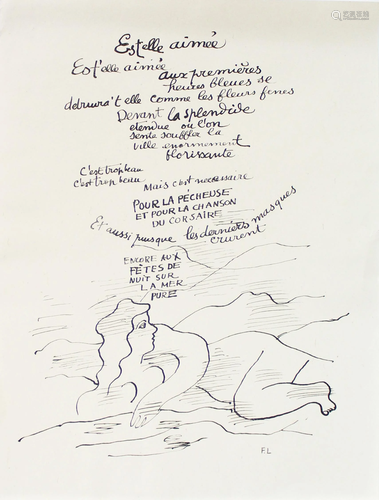 Est elle aimée
Est'elle aimée
aux premières
heures bleues se
detruira't elle comme les fleurs
Devant la splendide
etendue ou l'on
sente souffler la
ville enormement
florissante
C'est trop beau
c'est trop beau
Mais c'est necessaire
POUR LA PÉCHEUSE
ET POUR LA CHANSON
DU CORSAIRE
Et aussi puisque les derniers masques
crurent
ENCORE AUX
FÊTES DE
NUIT SUR
LA MER
PURE
F.L